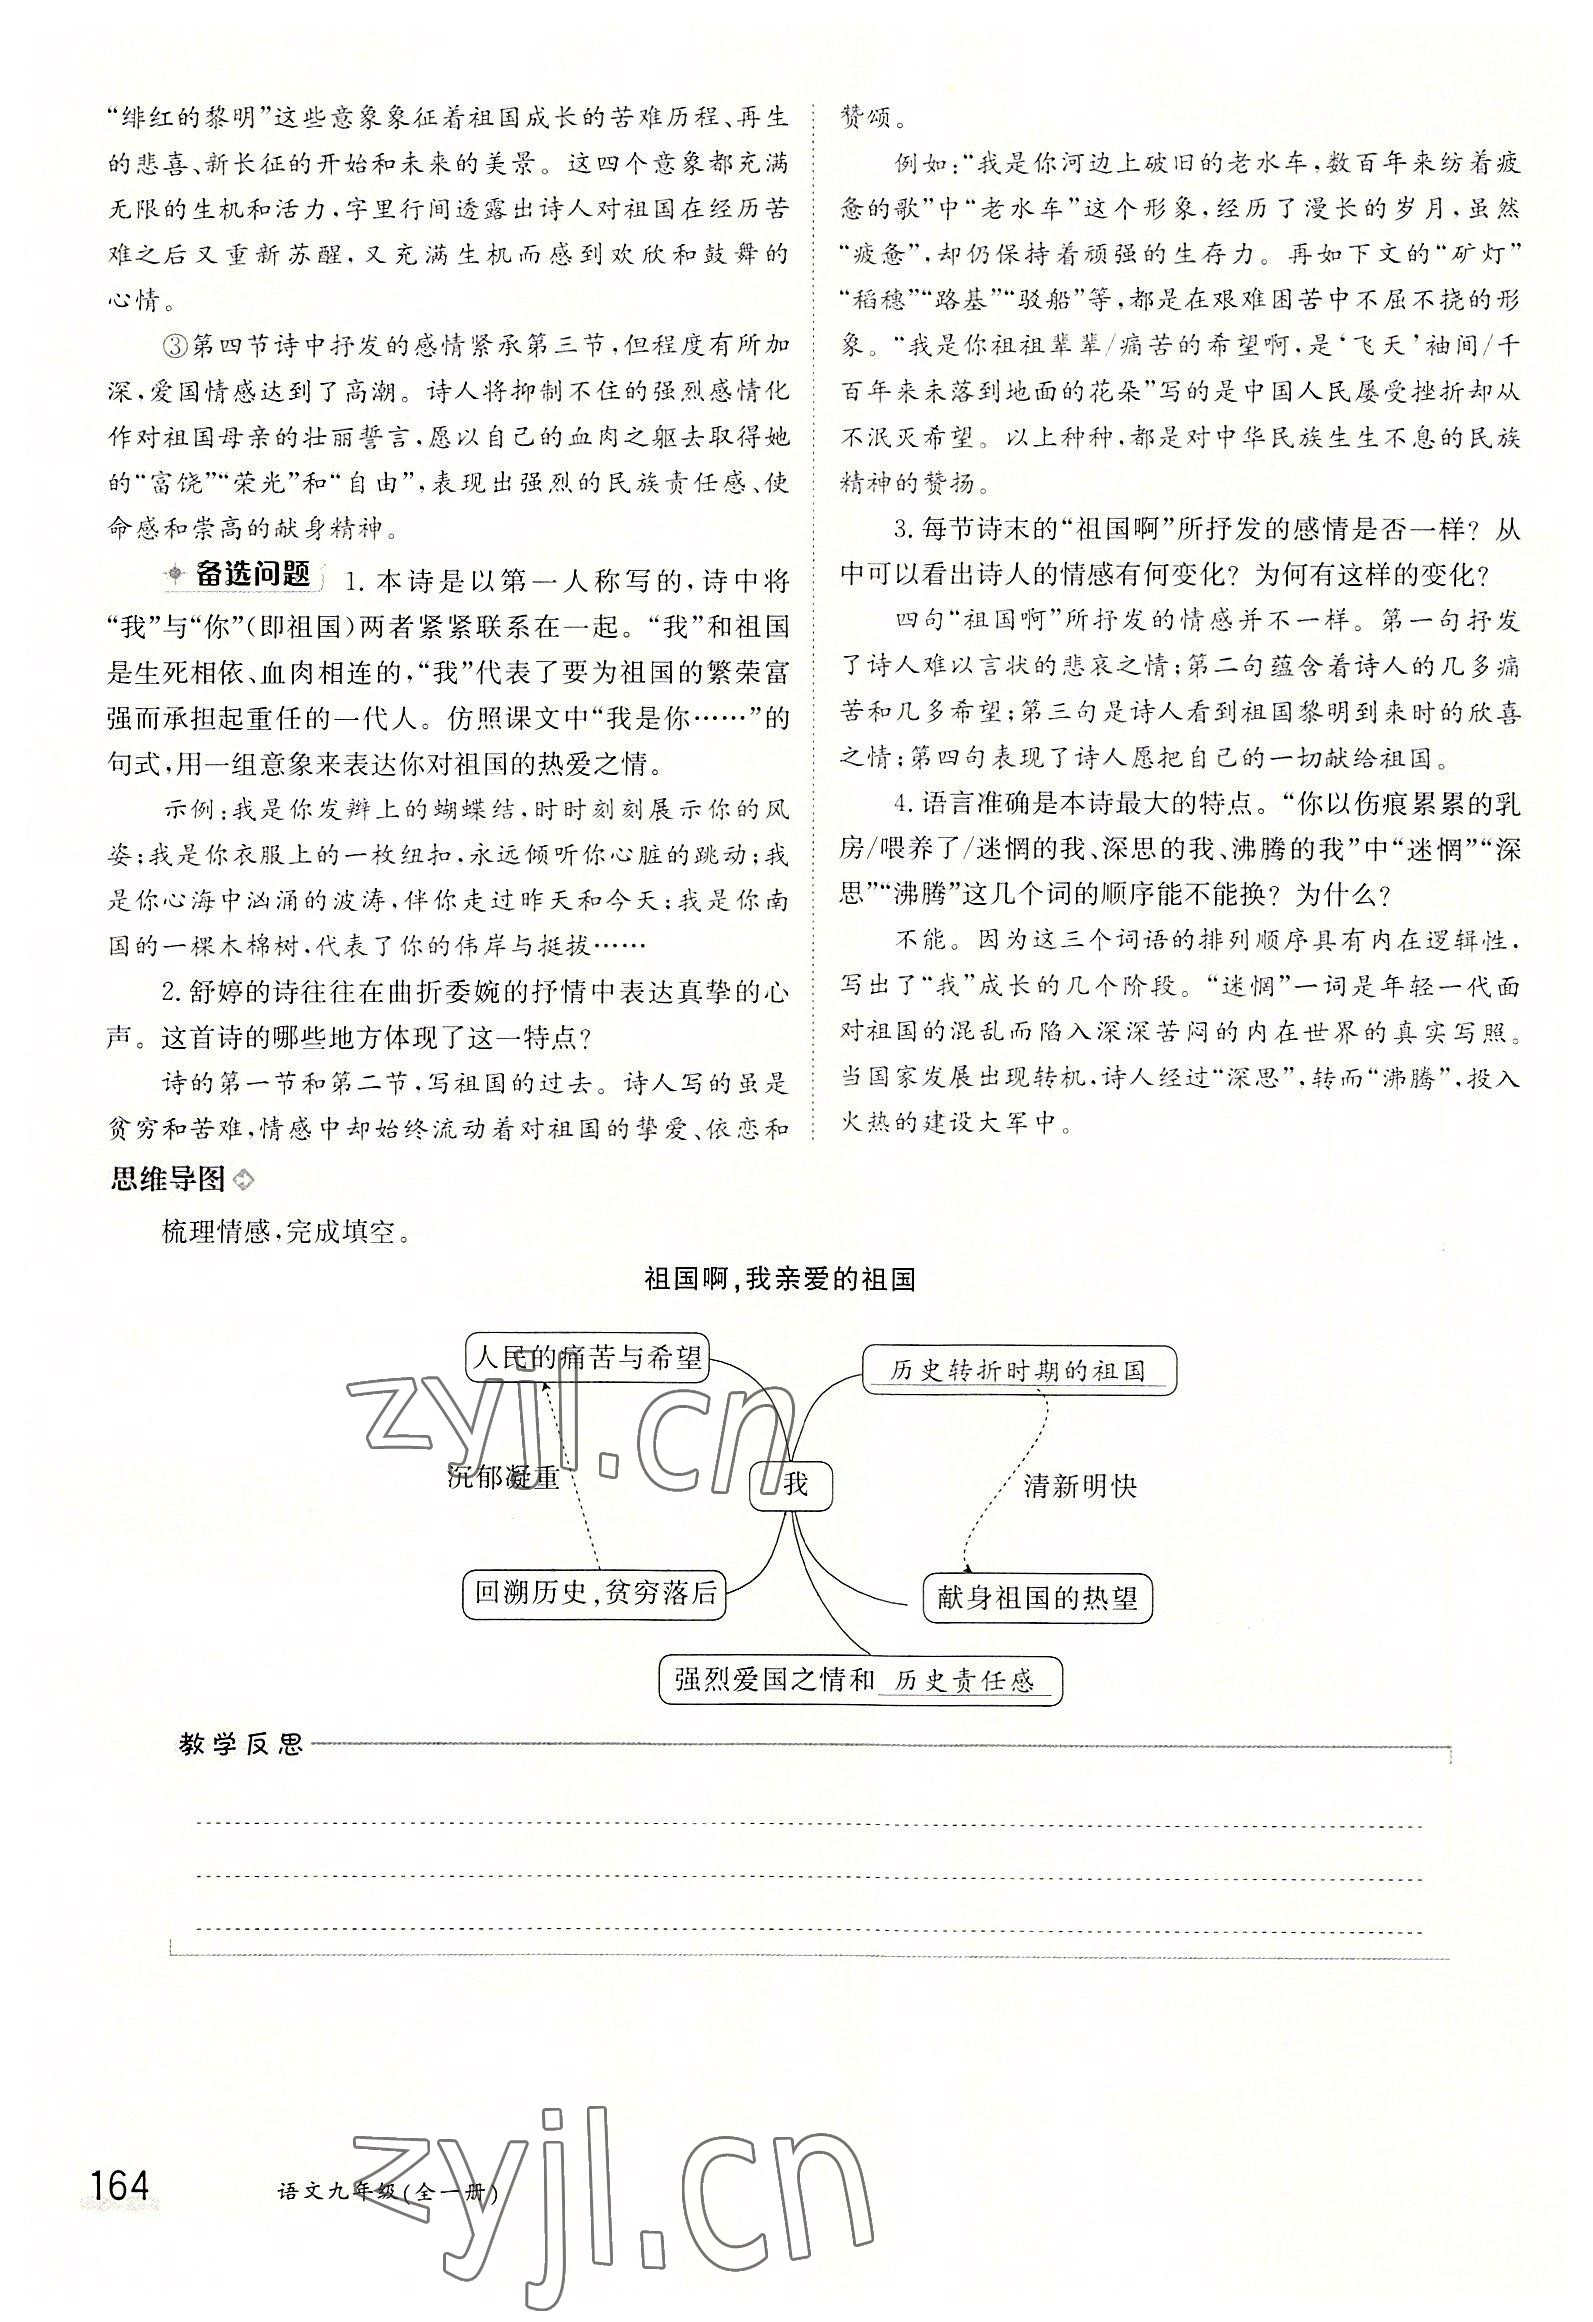 “绯红的黎明”这些意象象征着祖国成长的苦难历程、再生
的悲喜、新长征的开始和未来的美景。这四个意象都充满
无限的生机和活力,字里行间透露出诗人对祖国在经历苦
难之后又重新苏醒,又充满生机而感到欢欣和鼓舞的
心情。
③第四节诗中抒发的感情紧承第三节,但程度有所加
深,爱国情感达到了高潮。诗人将抑制不住的强烈感情化
作对祖国母亲的壮丽誓言,愿以自己的血肉之躯去取得她
的“富饶”“荣光”和“自由”,表现出强烈的民族责任感、使
命感和崇高的献身精神。
备选问题 1. 本诗是以第一人称写的,诗中将
“我”与“你”(即祖国)两者紧紧联系在一起。“我”和祖国
是生死相依、血肉相连的,“我”代表了要为祖国的繁荣富
强而承担起重任的一代人。仿照课文中“我是你……”的
句式,用一组意象来表达你对祖国的热爱之情。
示例:我是你发辫上的蝴蝶结,时时刻刻展示你的风
姿;我是你衣服上的一枚纽扣,永远倾听你心脏的跳动;我
是你心海中汹涌的波涛,伴你走过昨天和今天;我是你南
国的一棵木棉树,代表了你的伟岸与挺拔……
2. 舒婷的诗往往在曲折委婉的抒情中表达真挚的心
声。这首诗的哪些地方体现了这一特点?
诗的第一节和第二节,写祖国的过去。诗人写的虽是
贫穷和苦难,情感中却始终流动着对祖国的挚爱、依恋和
赞颂。
例如:“我是你河边上破旧的老水车,数百年来纺着疲
惫的歌”中“老水车”这个形象,经历了漫长的岁月,虽然
“疲惫”,却仍保持着顽强的生存力。再如下文的“矿灯”
“稻穗”“路基”“驳船”等,都是在艰难困苦中不屈不挠的形
象。“我是你祖祖辈辈/痛苦的希望啊,是‘飞天’袖间/千
百年来未落到地面的花朵”写的是中国人民屡受挫折却从
不泯灭希望。以上种种,都是对中华民族生生不息的民族
精神的赞扬。
3. 每节诗末的“祖国啊”所抒发的感情是否一样? 从
中可以看出诗人的情感有何变化? 为何有这样的变化?
四句“祖国啊”所抒发的情感并不一样。第一句抒发
了诗人难以言状的悲哀之情;第二句蕴含着诗人的几多痛
苦和几多希望;第三句是诗人看到祖国黎明到来时的欣喜
之情;第四句表现了诗人愿把自己的一切献给祖国。
4. 语言准确是本诗最大的特点。“你以伤痕累累的乳
房/喂养了/迷惘的我、深思的我、沸腾的我”中“迷惘”“深
思”“沸腾”这几个词的顺序能不能换? 为什么?
不能。因为这三个词语的排列顺序具有内在逻辑性,
写出了“我”成长的几个阶段。“迷惘”一词是年轻一代面
对祖国的混乱而陷入深深苦闷的内在世界的真实写照。
当国家发展出现转机,诗人经过“深思”,转而“沸腾”,投入
火热的建设大军中。
思维导图
梳理情感,完成填空。
祖国啊,我亲爱的祖国
人民的痛苦与希望
历史转折时期的祖国
沉郁凝重
我
清新明快
回溯历史,贫穷落后
献身祖国的热望
强烈爱国之情和 历史责任感
教学反思
164
语文九年级(全一册)
zyjl.cn
zyjl.cn